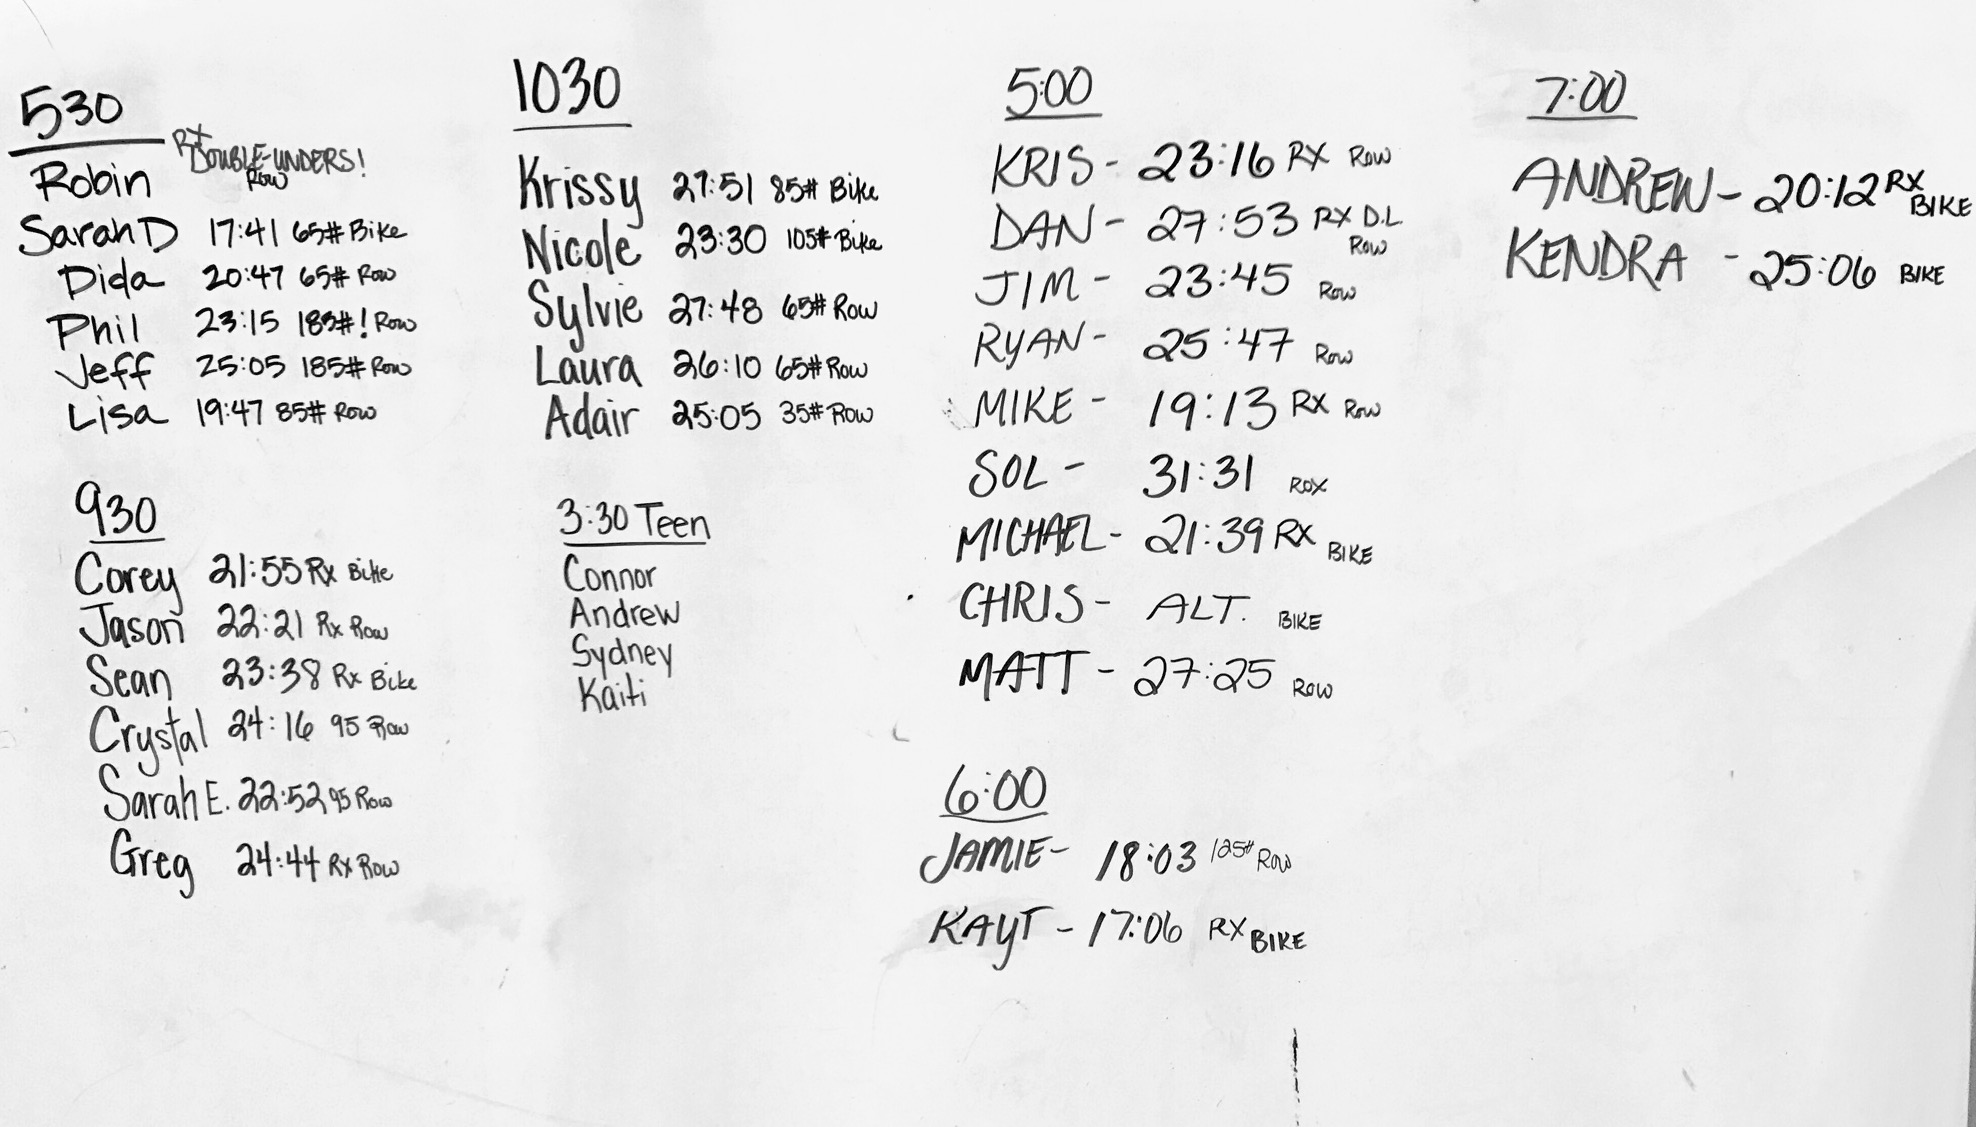 530
RX
DOUBLE-UNDERS!
Robin Row
Sarah D 17:41 65# Bike
Dida 20:47 65# Row
Phil 23:15 185#! Row
Jeff 25:05 185# Row
Lisa 19:47 85# Row
930
Corey 21:55 Rx Bike
Jason 22:21 Rx Row
Sean 23:38 Rx Bike
Crystal 24:16 95 Row
Sarah E. 22:52 95 Row
Greg 24:44 Rx Row
1030
Krissy 27:51 85# Bike
Nicole 23:30 105# Bike
Sylvie 27:48 65# Row
Laura 26:10 65# Row
Adair 25:05 35# Row
3:30 Teen
Connor
Andrew
Sydney
Kaiti
5:00
KRIS - 23:16 RX Row
DAN - 27:53 RX D.L
Row
JIM - 23:45 Row
RYAN - 25:47 Row
MIKE - 19:13 RX Row
SOL - 31:31 ROX
MICHAEL - 21:39 RX BIKE
CHRIS - ALT. BIKE
MATT - 27:25 Row
6:00
JAMIE - 18:03 125# Row
KAYT - 17:06 RX BIKE
7:00
ANDREW - 20:12 RX
BIKE
KENDRA - 25:06 BIKE